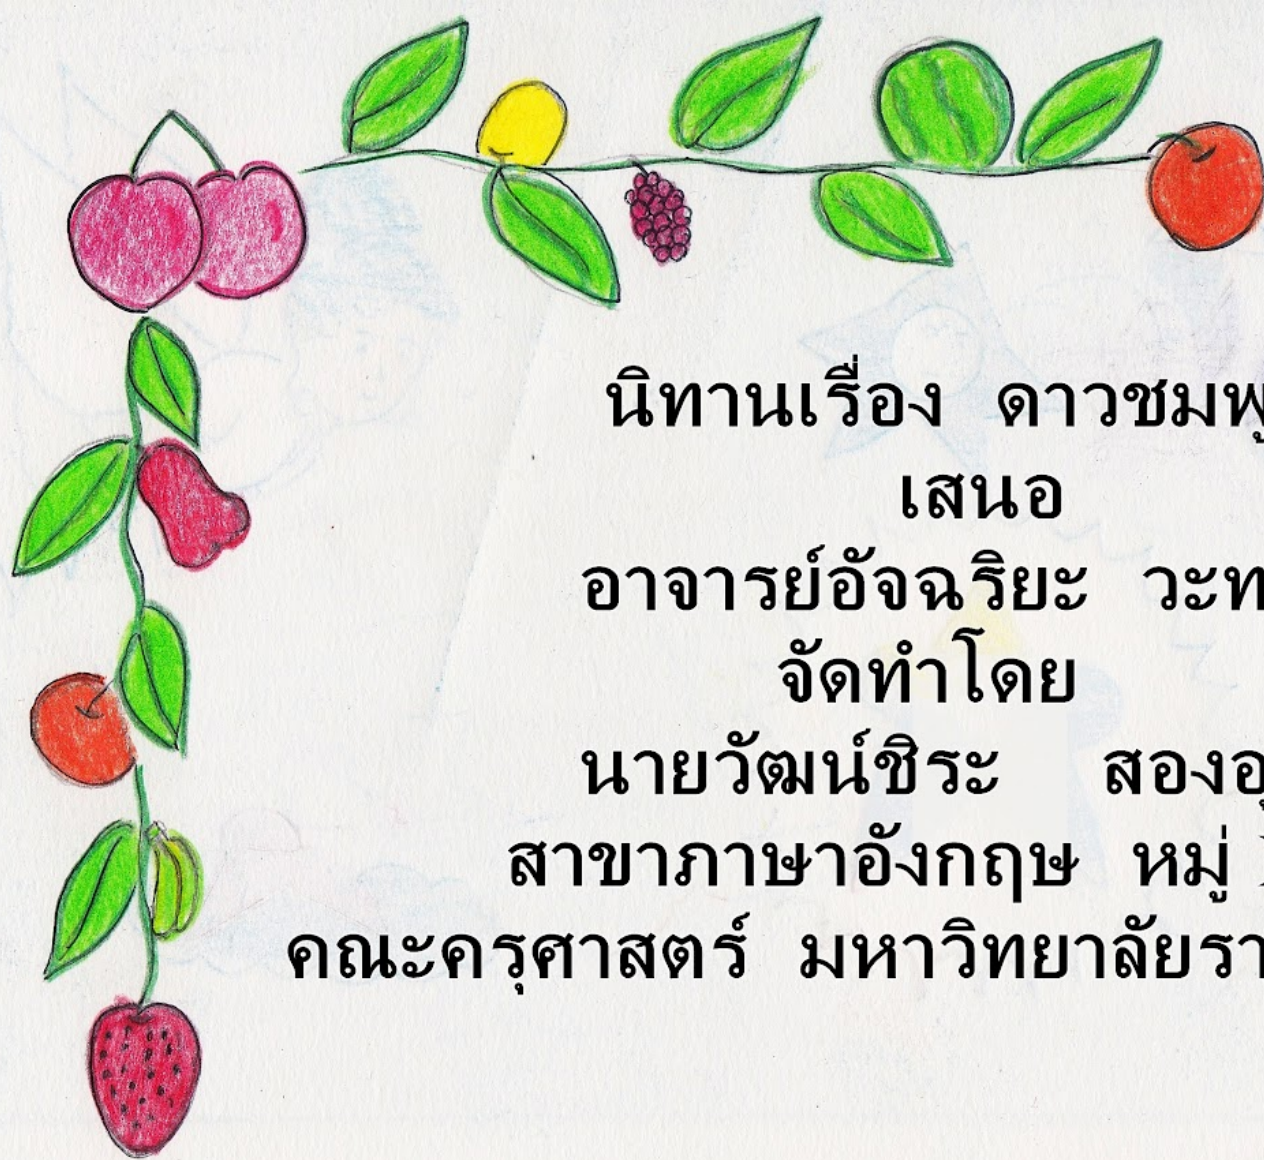 นิทานเรื่อง ดาวชมพู
เสนอ
อาจารย์อัจฉริยะ วะท
จัดทำโดย
นายวัฒน์ชิระ สองอุ
สาขาภาษาอังกฤษ หมู่
คณะครุศาสตร์ มหาวิทยาลัยรา